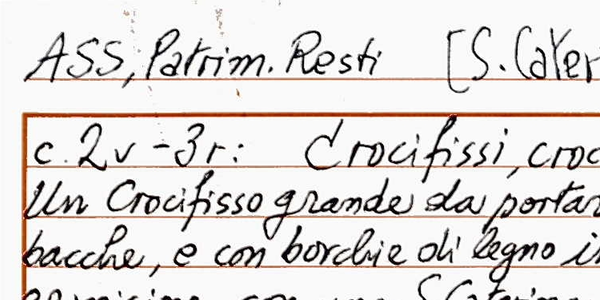 ASS, Patrim. Resti [S. Cater
c. 2v-3r: Crocifissi, croc
Un Crocifisso grande da portar
bacche, e con borchie di legno in
con una S. Caterina